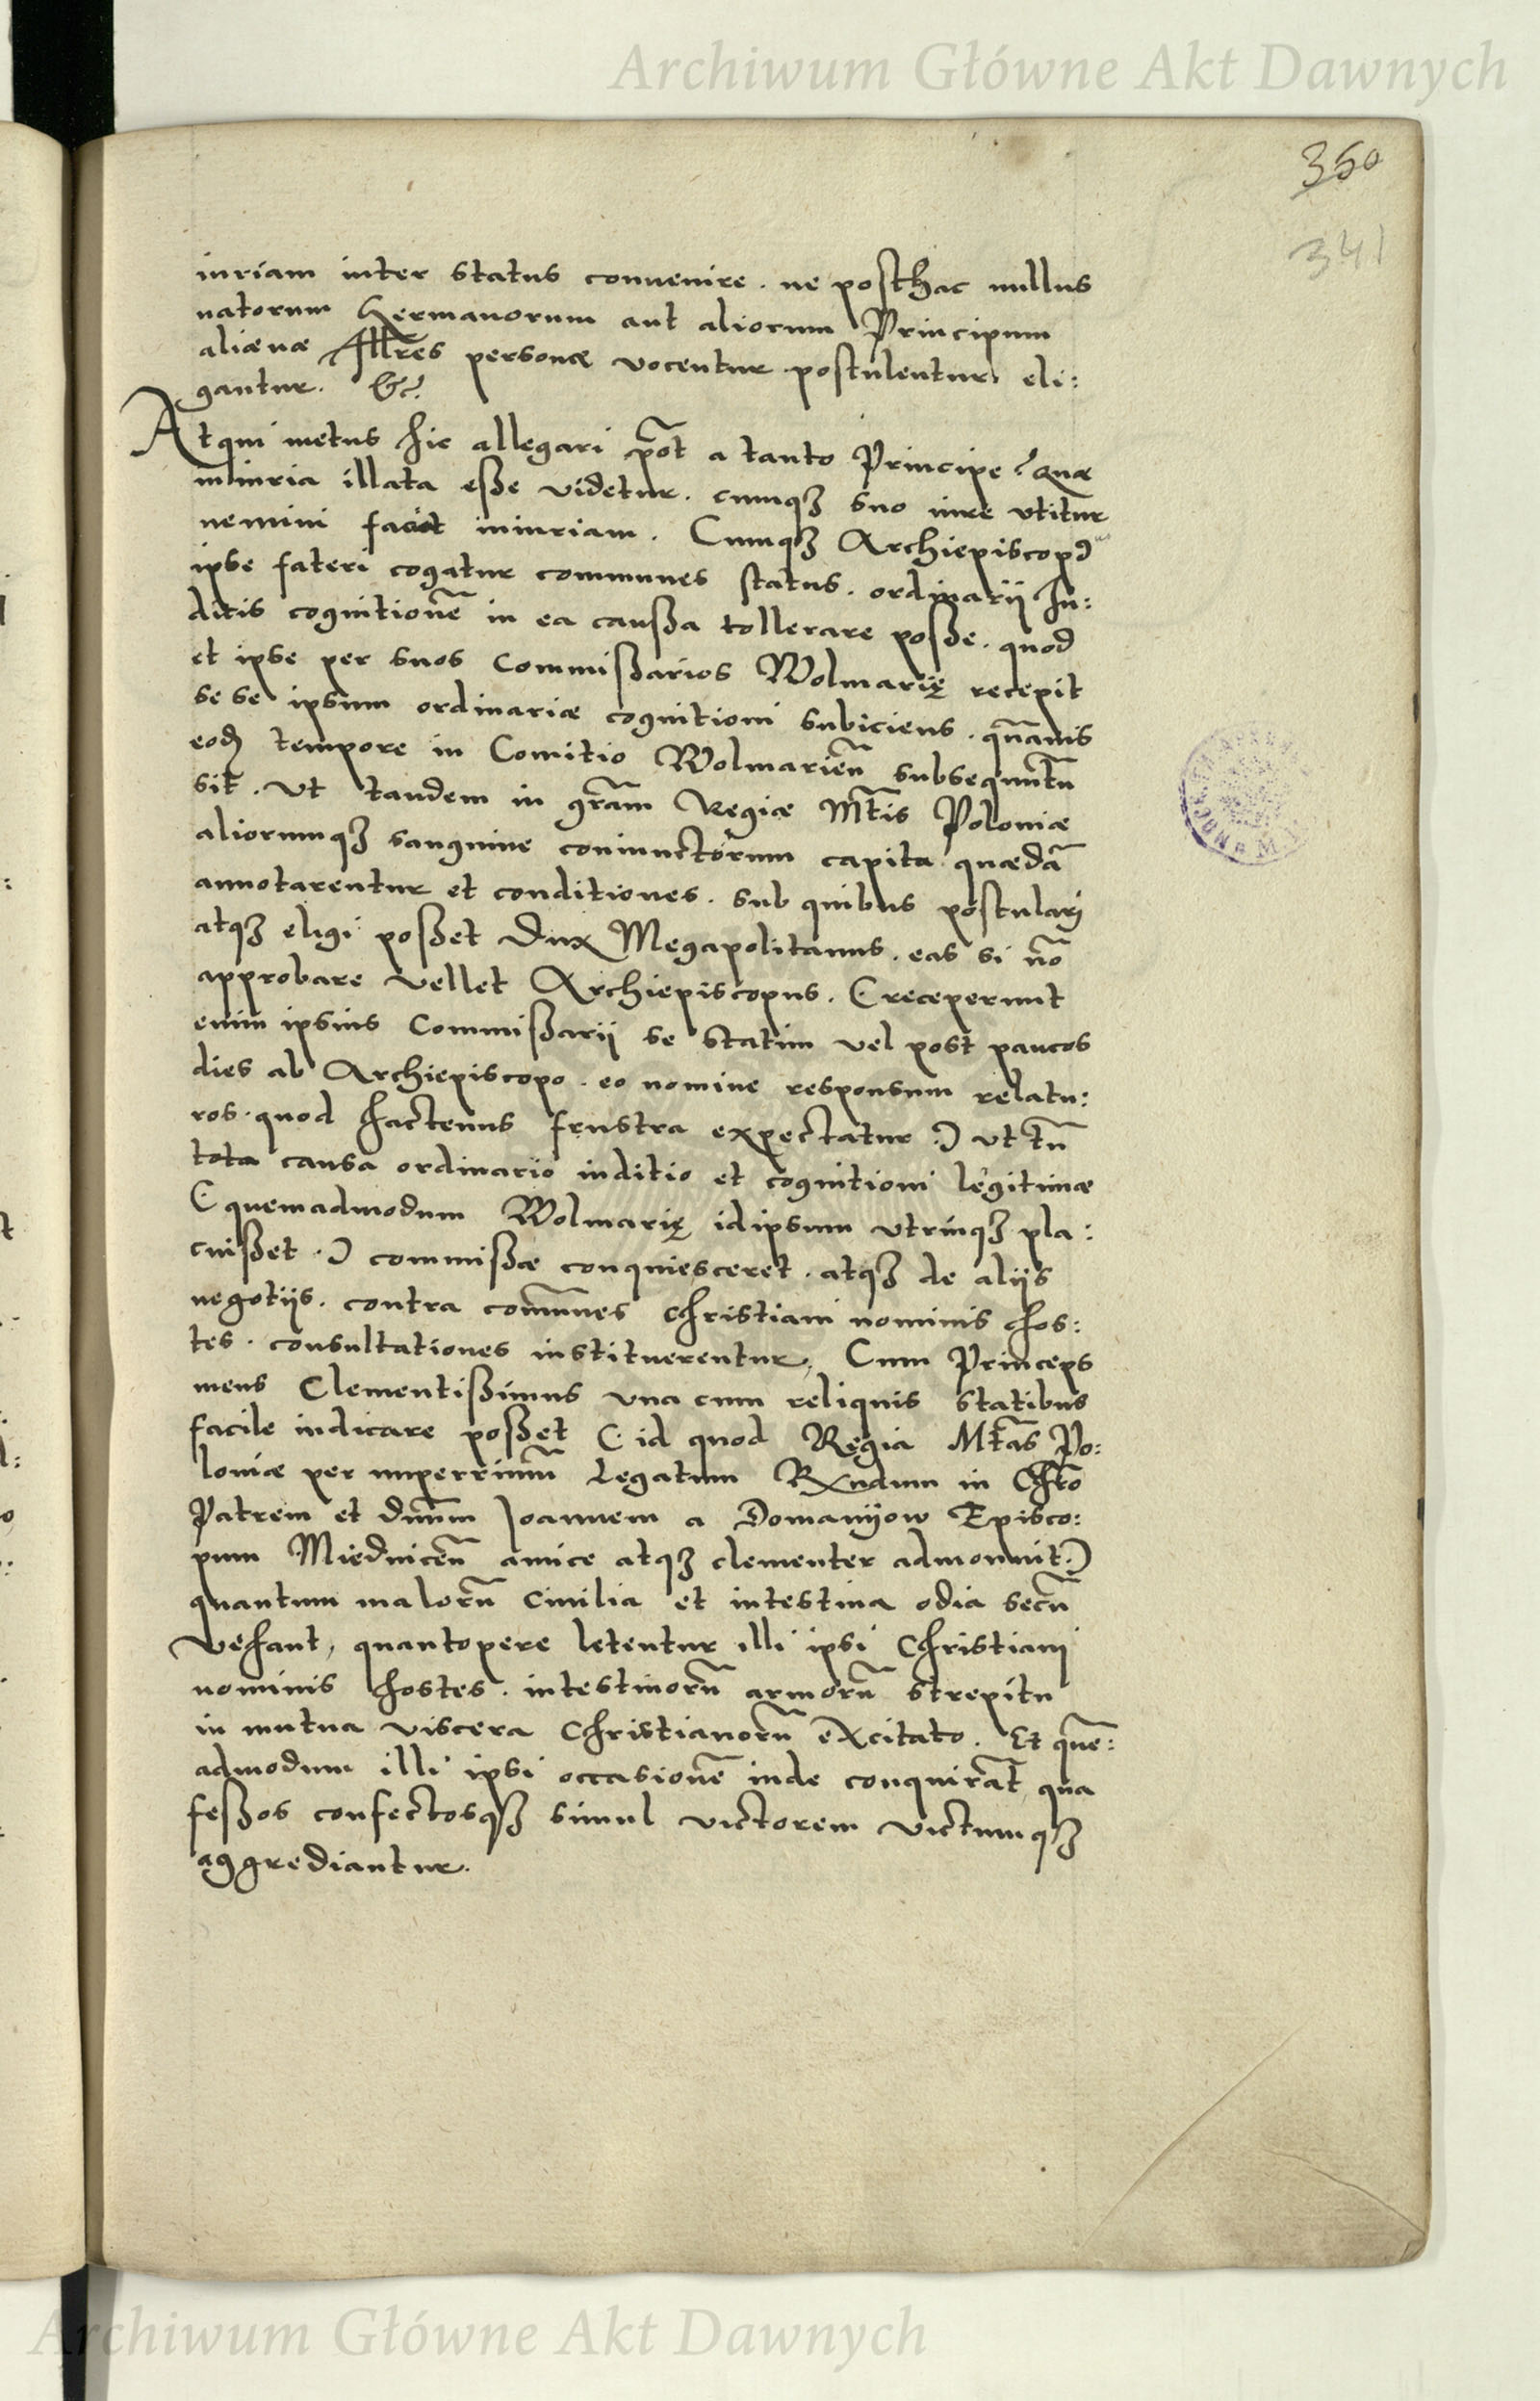 Archiwum Główne Akt Dawnych
350
341
iuriam inter status conuenire. ne posthac nullus
natorum Germanorum aut aliorum Principum
alienæ personæ vocentur postulentur, eli:
gantur. &c.
Atqui metus hic allegari põt a tanto Principe? Quæ
iniuria illata esse videtur. cumqꝫ suo iure vtitur
nemini facit iniuriam. Cumqꝫ Archiepiscopꝰ
ipse fateri cogatur communes status. ordinarii Iu:
ditis cognitionẽ in ea caussa tollerare posse. quod
et ipse per suos Commissarios Wolmarię recepit
se se ipsum ordinariæ cognitioni subiciens. quãuis
eod tempore in Comitio Wolmarieñ subsequutũ
sit. Vt tandem in grãm Regiæ Mtis Poloniæ
aliorumqꝫ sanguine coniunctorum capita quædã
annotarentur et conditiones. sub quibus postulari
atqꝫ eligi posset Dux Megapolitanus. eas si nõ
approbare vellet Archiepiscopus. (receperunt
enim ipsius Commissarii se statim vel post paucos
dies ab Archiepiscopo. eo nomine responsum relatu:
ros. quod hactenus frustra expectatur) vt tũ
tota causa ordinario iuditio et cognitioni legitimæ
(quemadmodum Wolmarię idipsum vtrinqꝫ pla:
cuisset.) commissæ conquiesceret. atqꝫ de aliis
negotiis. contra comũnes Christiani nominis hos:
tes. consultationes instituerentur, Cum Princeps
meus Clementissimus vna cum reliquis statibus
facile iudicare posset (id quod Regia Mtãs Po:
loniæ per nuperrimũ Legatum Rxndum in Chro
Patrem et dnũm Joannem a Domanÿow Episco:
pum Miedniceñ amice atqꝫ clementer admonuit.)
quantum malorũ Ciuilia et intestina odia secũ
vehant, quantopere letentur illi ipsi Christiani
nominis hostes. intestinorũ armorũ strepitu
in mutua viscera Christianorũ excitato. Et quẽ:
admodum illi ipsi occasionẽ inde conquirãt qua
fessos confectosqꝫ simul victorem victumqꝫ
aggrediantur.
Archiwum Główne Akt Dawnych